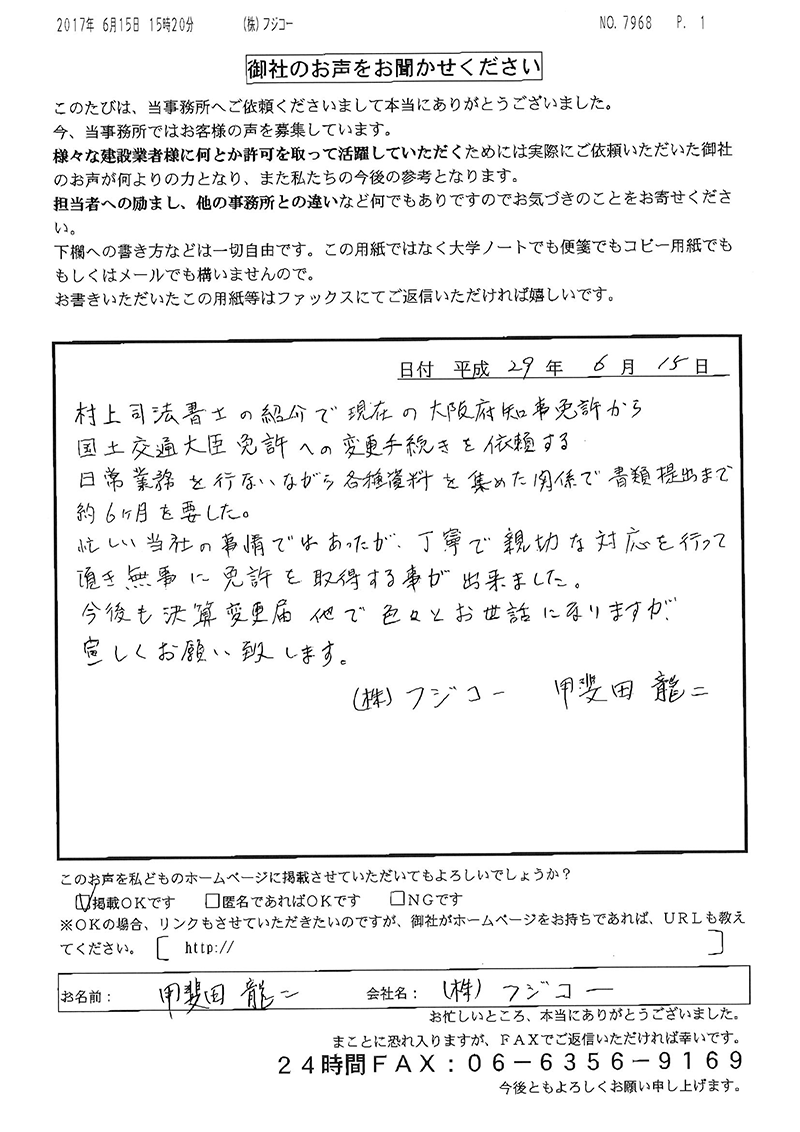 2017年 6月15日 15時20分 (株)フジコー NO. 7968 P. 1
御社のお声をお聞かせください
このたびは、当事務所へご依頼くださいまして本当にありがとうございました。
今、当事務所ではお客様の声を募集しています。
様々な建設業者様に何とか許可を取って活躍していただくためには実際にご依頼いただいた御社
のお声が何よりの力となり、また私たちの今後の参考となります。
担当者への励まし、他の事務所との違いなど何でもありですのでお気づきのことをお寄せくださ
い。
下欄への書き方などは一切自由です。この用紙ではなく大学ノートでも便箋でもコピー用紙でも
もしくはメールでも構いませんので。
お書きいただいたこの用紙等はファックスにてご返信いただければ嬉しいです。
日付 平成 29 年 6 月 15 日
村上司法書士の紹介で現在の大阪府知事免許から
国土交通大臣免許への変更手続きを依頼する
日常業務を行ないながら各種資料を集めた関係で書類提出まで
約6ヶ月を要した。
忙しい当社の事情ではあったが、丁寧で親切な対応を行って
頂き無事に免許を取得する事が出来ました。
今後も決算変更届他で色々とお世話になりますが、
宜しくお願い致します。
(株)フジコー 甲斐田龍二
このお声を私どものホームページに掲載させていただいてもよろしいでしょうか？
☑掲載OKです □匿名であればOKです □NGです
※OKの場合、リンクもさせていただきたいのですが、御社がホームページをお持ちであれば、URLも教え
てください。 [ http:// ]
お名前： 甲斐田龍二 会社名： (株)フジコー
お忙しいところ、本当にありがとうございました。
まことに恐れ入りますが、FAXでご返信いただければ幸いです。
24時間FAX：06-6356-9169
今後ともよろしくお願い申し上げます。